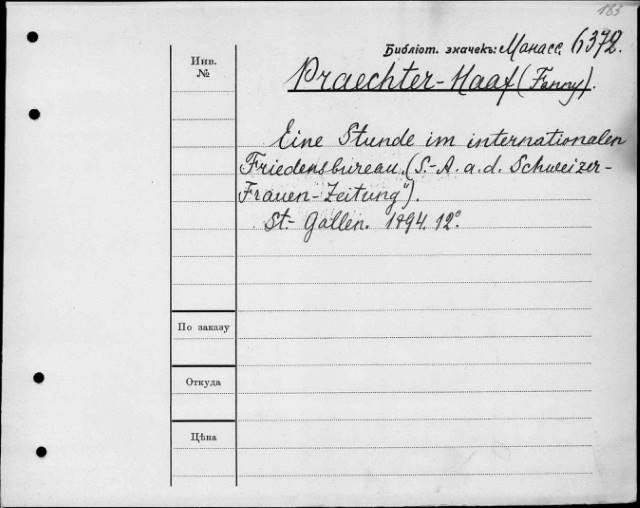 183
Библіот. значекъ: Монасс 6372.
Инв.
№
Praechter-Haaf (Fanny).
Eine Stunde im internationalen
Friedensbureau. (S.-A. a. d. Schweizer-
Frauen-Zeitung").
St.- Gallen. 1894. 12°
По заказу
Откуда
Цѣна